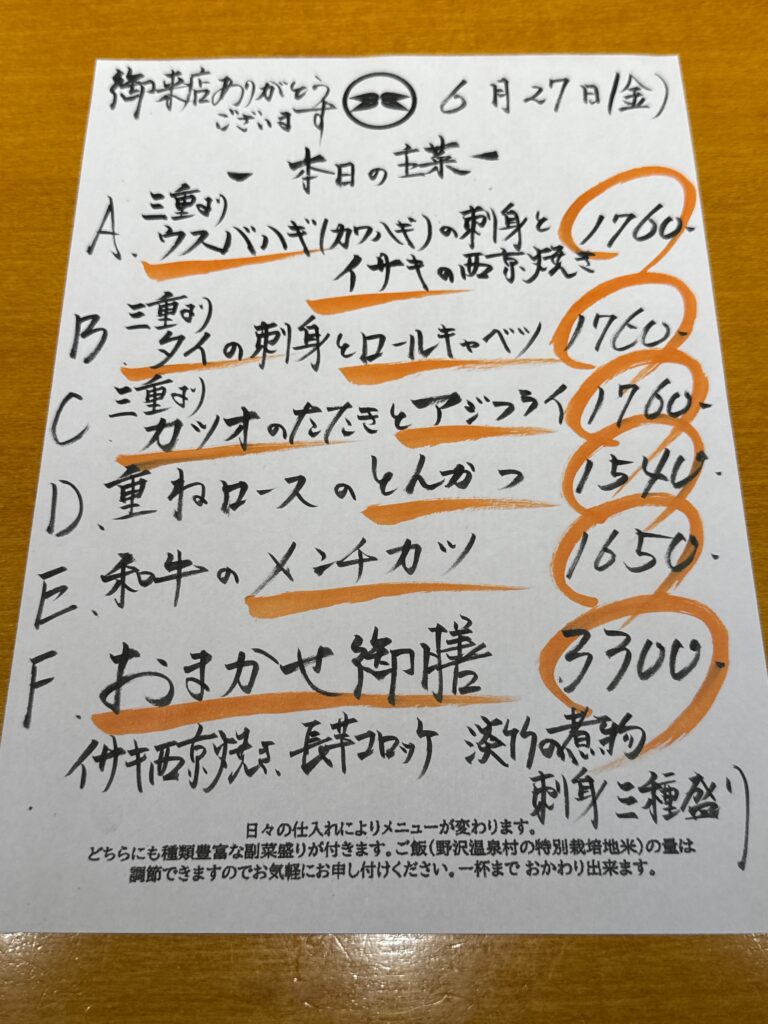 御来店ありがとう
ございます
6月27日(金)
- 本日の主菜 -
A. 三重より
ウスバハギ(カワハギ)の刺身と 1760-
イサキの西京焼き
B 三重より
タイの刺身とロールキャベツ 1760-
C 三重より
カツオのたたきとアジフライ 1760-
D. 重ねロースのとんかつ 1540-
E. 和牛のメンチカツ 1650-
F. おまかせ御膳 3300-
イサキ西京焼き、長芋コロッケ 淡竹の煮物
刺身三種盛り
日々の仕入れによりメニューが変わります。
どちらにも種類豊富な副菜盛りが付きます。ご飯(野沢温泉村の特別栽培地米)の量は
調節できますのでお気軽にお申し付けください。一杯まで おかわり出来ます。